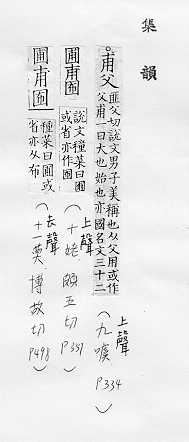 集韻
甫父 匪父切說文男子美稱也从父用或作
父甫一曰大也始也亦國名文三十二
(上聲 九噳 P334)
圃甫𡇈 說文種菜曰圃
或省亦作𡇈
(上聲 十姥 頗五切 P351)
圃甫𡇈 種菜曰圃或
省亦从布
(去聲 十一莫 博故切 P498)